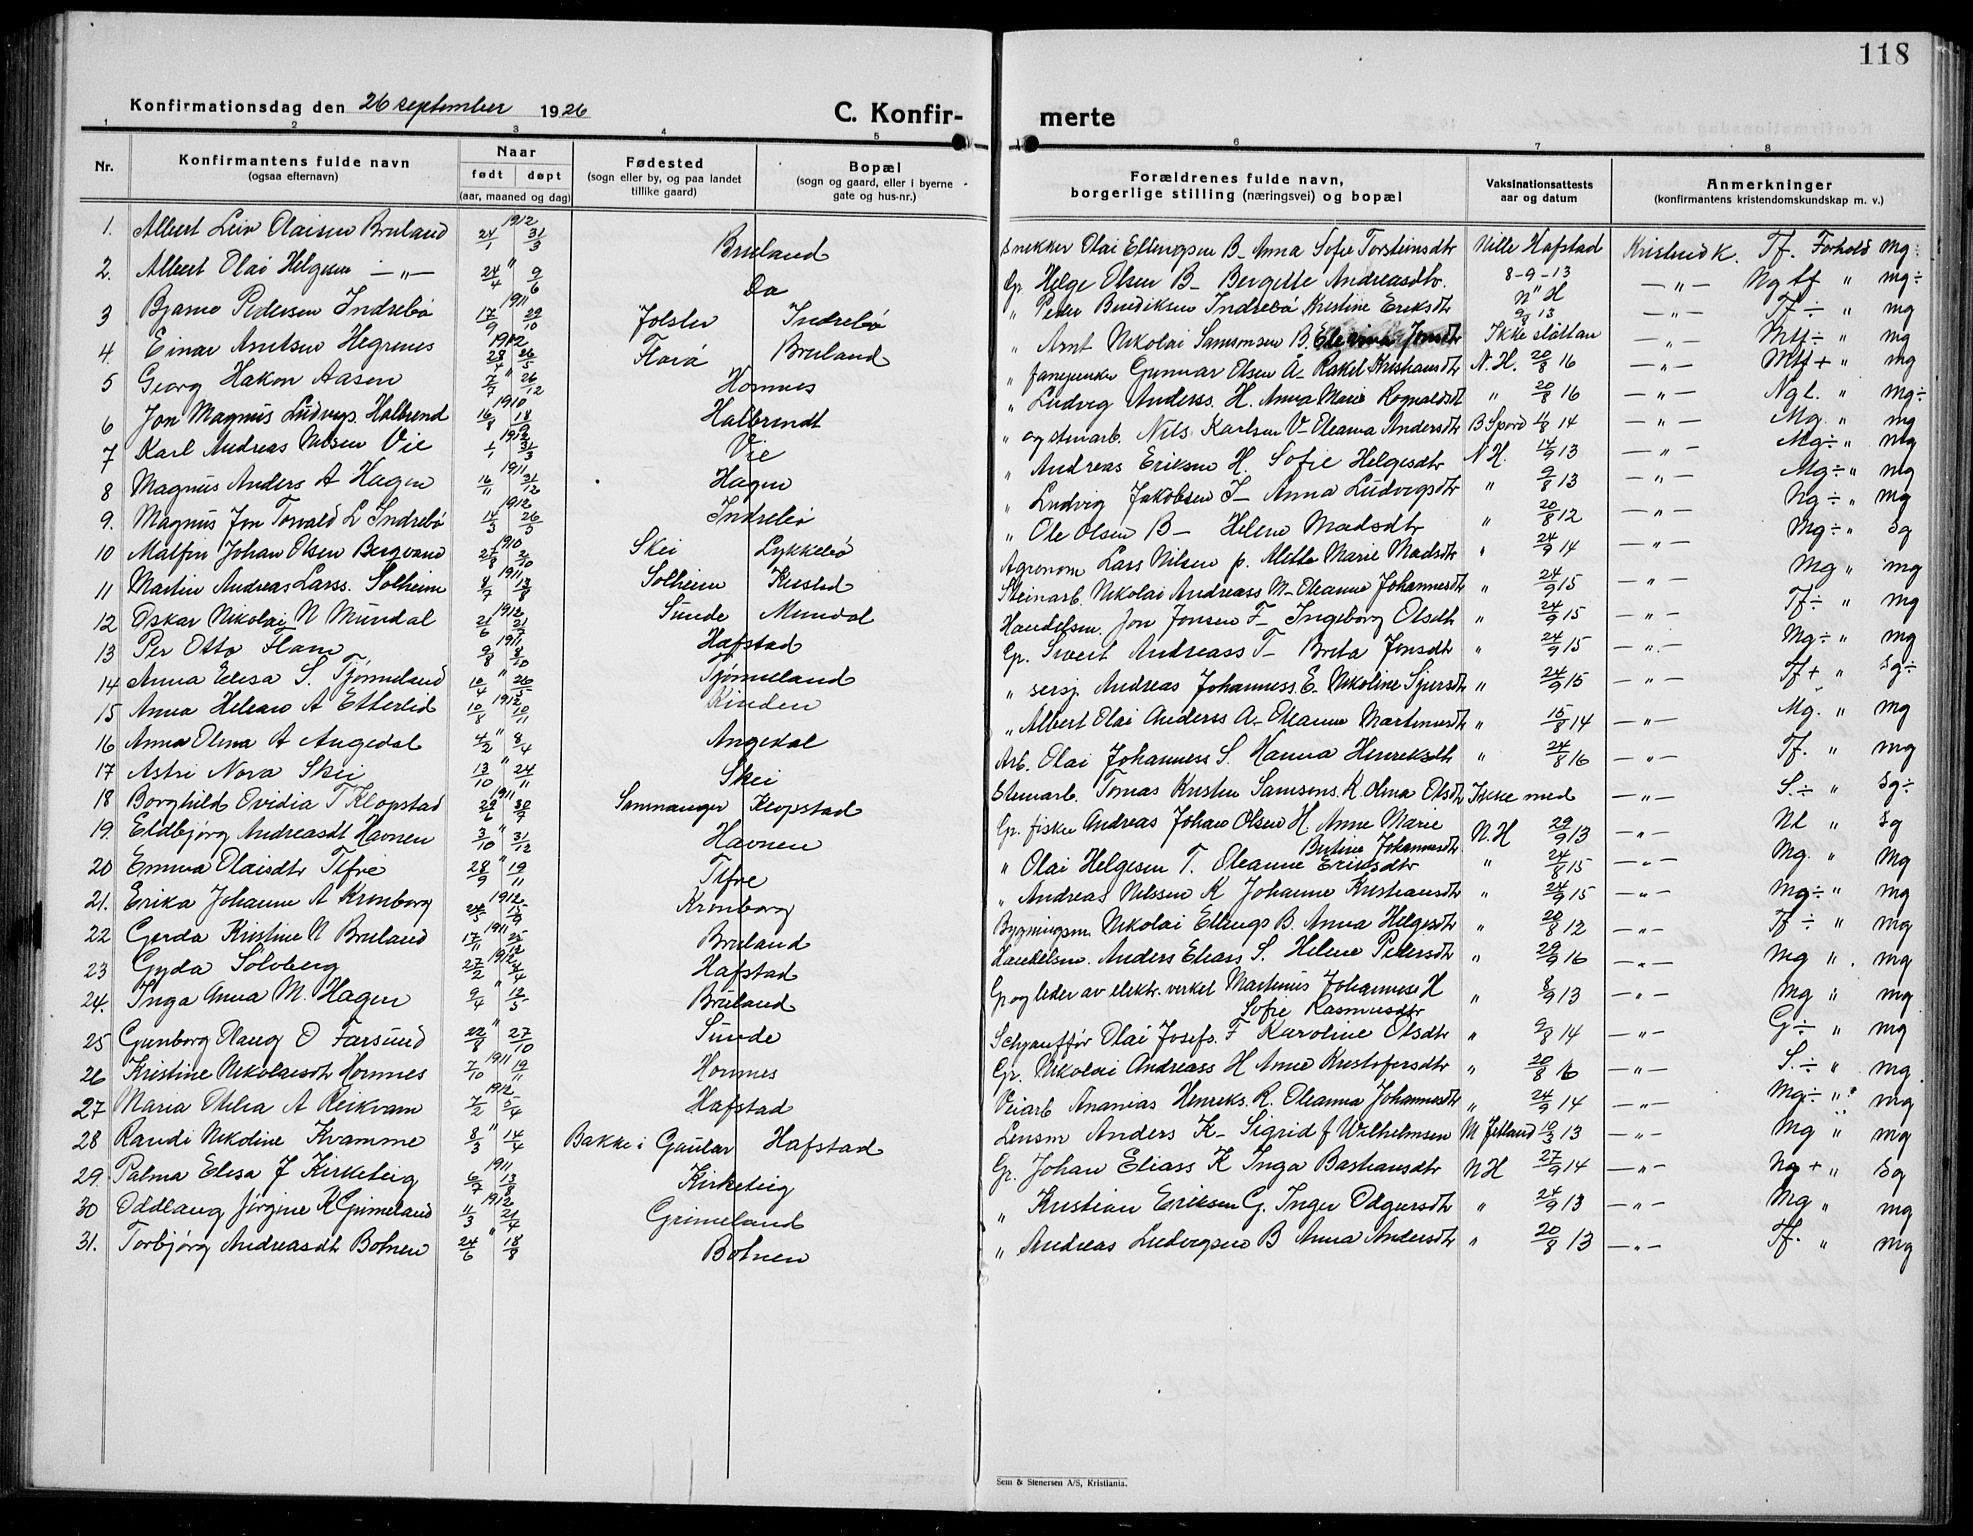 118
Konfirmationsdag den 26 september 1926
C. Konfir- merte
1 2 3 4 5 6 7 8
Nr.
Konfirmantens fulde navn
(ogsaa efternavn)
Naar
født døpt
(aar, maaned og dag)
Fødested
(sogn eller by, og paa landet
tillike gaard)
Bopæl
(sogn og gaard, eller i byerne
gate og hus-nr.)
Forældrenes fulde navn,
borgerlige stilling (næringsvei) og bopæl
Vaksinationsattests
aar og datum
Anmerkninger
(konfirmantens kristendomskundskap m. v.)
1. Albert Leiv Olaisen Bruland 1912 24/1 31/3 Bruland Snekker Olai Ellingsen B- Anna Sofie Torsteinsdtr Nille Hafstad 8-9-13 Kristendk. Tf. Forhold Mg÷
2. Albert Olai Helgesen -"- " 24/4 9/6 Do Gr. Helge Olsen B- Bergitte Andreasdtr. N" H 9/8 13 -"- Ng tf " mg÷
3 Bjarne Pedersen Indrebø 1911 17/9 29/10 Jølster Indrebø " Peder Bendiksen Indrebø Kristine Eriksdtr -"- Tf÷ " mg
4. Einar Arntsen Hegrenes 1912 28/4 26/5 Florø Bruland " Arnt Nikolai Samsonsen B. Jonsdtr Ikke slåttan -"- Mtf÷ " mg
5 Georg Håkon Aasen 7/7 26/12 Hornnes " fanejunker Gunnar Olsen Å- Rakel Kristiansdtr N. H. 20/8 16 -"- Mtf+ " mg
6 Jon Magnus Ludvigs. Halbrend 1910 16/8 18/9 Halbrendt " Ludvig Anderss. H. Anna Marie Romaldsdt " 20/8 16 -"- Ngl. " mg÷
7 Karl Andreas Nilsen Vie 1912 1/1 31/3 Vie " og stenarb. Nils Karlsen V- Oleana Andersdtr B Spord 11/8 14 -"- Mg. " mg
8 Magnus Anders A Hagen 1911 16/11 31/12 Hagen " Andreas Eriksen H. Sofie Helgesdtr N H. 14/9 13 -"- Mg÷ " mg
9. Magnus Jon Torvald L Indrebø 1912 14/3 26/5 Indrebø " Ludvig Jakobsen I- Anna Ludvigsdtr " 9/8 13 -"- Mg÷ " mg
10 Malfin Johan Olsen Bergvand 1910 27/8 2/10 Skei Lykkebø " Ole Olsen B- Helene Madsdtr " 20/8 12 -"- Ng÷ " mg
11 Martin Andreas Larss. Solheim 1911 8/7 13/8 Solheim Kusted Agronom Lars Nilsen p. Alette Marie Madsdtr " 24/9 14 -"- Mg÷ " Sg
12 Oskar Nikolai N Mundal 1912 21/6 21/7 Sunde Mundal Steinarb. Nikolai Andreass M- Oleanne Johannesdtr " 24/9 15 -"- Mg " mg
13 Per Otto Flam 1911 9/8 8/10 Hafstad Handelsm. Jon Jonsen F- Ingeborg Olsdtr " 24/9 15 -"- Tf÷ " mg
14 Anna Elisa S. Tjønneland " 10/4 26/5 Tjønneland Gr. Sivert Andreass T- Brita Jonsdtr " 24/9 15 -"- Mg÷ " mg
15 Anna Helene A Etterlid 1912 10/8 10/11 Kinden " sersj. Andreas Johanness. E- Nikoline Sjursdtr " 24/9 15 -"- Tf+ " Sg÷
16 Anna Olena A Angedal " 4/2 8/4 Angedal " Albert Olai Anderss A- Oleanne Martinusdtr " 15/8 14 -"- Mg. " mg
17 Astri Nora Skei " 13/10 24/11 Skei Arb. Olai Johanness S. Hanna Henreksdtr " 24/8 16 -"- Tf. " mg
18 Borghild Ovidia T Klopstad 1911 29/6 30/7 Sammanger Klopstad Stenarb. Tomas Kristen Samsons. K Olma Olsdtr Ikke med -"- S.÷ " Sg÷
19. Eldbjørg Andreasdt Havnen " 3/10 31/12 Havnen Gr. fisker Andreas Johan Olsen H Anne Marie Bertine Johannesdtr N. H 29/9 13 -"- Nl " Sg
20 Emma Olaisdtr Tefre " 28/9 19/11 Tefre " Olai Helgesen T. Oleanne Eriksdtr " 24/8 15 -"- Mg. " Mg
21. Erika Johanne A Kronborg 1912 24/5 15/9 Kronborg " Andreas Nilssen K Johanne Kristiansdtr " 24/9 15 -"- Mg÷ " mg
22 Gerda Kristine N Bruland 1911 17/11 25/ Bruland Bygningsm. Nikolai Ellings B. Anna Helgesdtr " 20/8 12 -"- Tf÷ " mg
23 Gyda Solvberg 1912 27/2 /4 Hafstad Handelsm. Anders Eliass S. Helene Pedersdtr " 29/9 16 -"- mg " mg
24. Inga Anna M. Hagen " 9/4 12/5 Bruland Gr og leder av elektr. verket Martinus Johanness H Sofie Rasmusdtr " 8/9 13 -"- mg " mg
25 Gunborg Olaug O Farsund " 22/8 27/10 Sunde Schauffør Olai Josefs. F Karoline Olsdtr " 9/8 14 -"- G÷ " mg
26 Kristine Nikolaisdtr Hornnes 1911 7/10 19/11 Hornnes Gr. Nikolai Andreass H Anne Kristofersdtr " 20/8 16 -"- S.÷ " mg.
27 Maria Otelia A Reikvam 1912 7/2 5/4 Hafstad Veiarb Ananias Henreks. R. Oleanna Johannesdtr " 24/9 14 -"- Mg÷ " mg
28 Randi Nikoline Kvamme " 8/3 14/4 Bakke i Gaular Hafstad Lensm Anders K- Sigrid f Wilhelmsen M Jetland 10/3 13 -"- Mg " mg
29. Palma Elisa J Kirketeig 1911 6/7 13/8 Kirketeig Gr. Johan Eliass K Inga Bastiansdtr N H 27/9 14 -"- Ng+ " Sg
30 Oddlaug Jørgine K Grimeland 1912 11/3 21/4 Grimeland " Kristian Eriksen G. Inger Odgersdtr " 24/9 13 -"- Mg " mg
31. Torbjørg Andreasdt Botnen " 24/6 18/8 Botnen " Andreas Ludvigsen B Anna Andersdtr " 20/8 13 -"- Tf. " mg
Sem & Stenersen A/S, Kristiania.